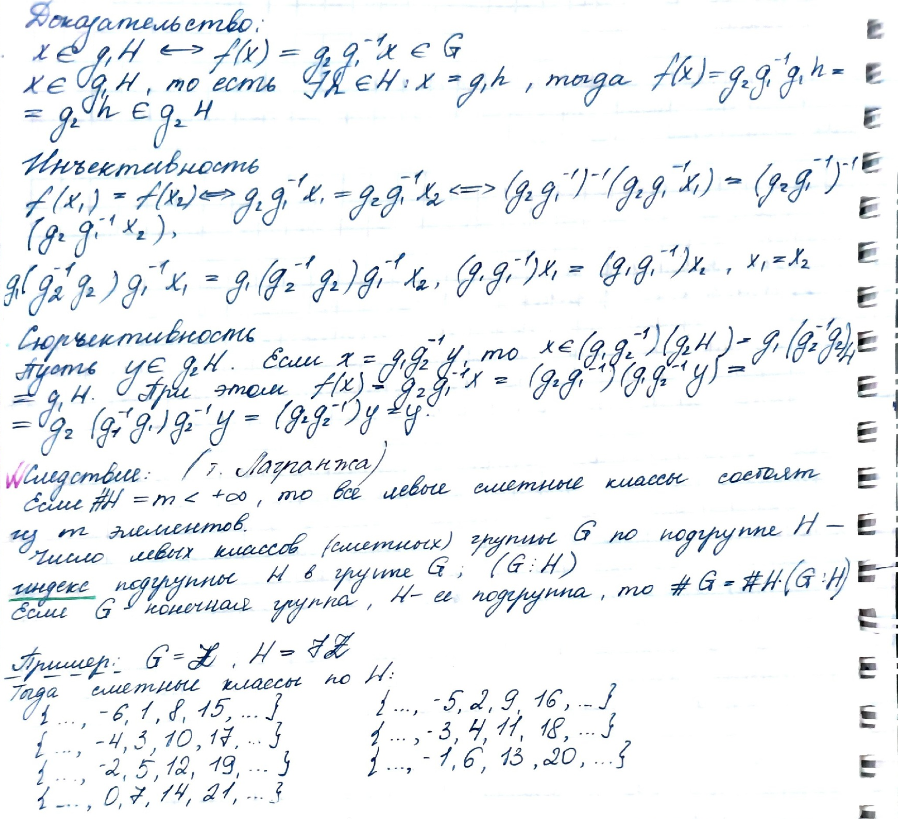 Доказательство:
x ∈ g₁H ⟷ f(x) = g₂g₁⁻¹x ∈ G
x ∈ g₁H, то есть ∃h ∈ H : x = g₁h, тогда f(x) = g₂g₁⁻¹g₁h =
= g₂h ∈ g₂H
Инъективность
f(x₁) = f(x₂) ⟺ g₂g₁⁻¹x₁ = g₂g₁⁻¹x₂ ⟺ (g₂g₁⁻¹)⁻¹(g₂g₁⁻¹x₁) = (g₂g₁⁻¹)⁻¹
(g₂g₁⁻¹x₂),
g₁(g₂⁻¹g₂)g₁⁻¹x₁ = g₁(g₂⁻¹g₂)g₁⁻¹x₂, (g₁g₁⁻¹)x₁ = (g₁g₁⁻¹)x₂, x₁ = x₂
Сюръективность
Пусть y ∈ g₂H. Если x = g₁g₂⁻¹y, то x ∈ (g₁g₂⁻¹)(g₂H) = g₁(g₂⁻¹g₂)H
= g₁H. При этом f(x) = g₂g₁⁻¹x = (g₂g₁⁻¹)(g₁g₂⁻¹y) =
= g₂(g₁⁻¹g₁)g₂⁻¹y = (g₂g₂⁻¹)y = y.
Следствие: (т. Лагранжа)
Если #H = m < +∞, то все левые смежные классы состоят
из m элементов.
Число левых классов (смежных) группы G по подгруппе H –
индекс подгруппы H в группе G; (G:H)
Если G конечная группа, H – ее подгруппа, то #G = #H·(G:H)
Пример: G = ℤ, H = 7ℤ
Тогда смежные классы по H:
{..., -6, 1, 8, 15, ...} {..., -5, 2, 9, 16, ...}
{..., -4, 3, 10, 17, ...} {..., -3, 4, 11, 18, ...}
{..., -2, 5, 12, 19, ...} {..., -1, 6, 13, 20, ...}
{..., 0, 7, 14, 21, ...}